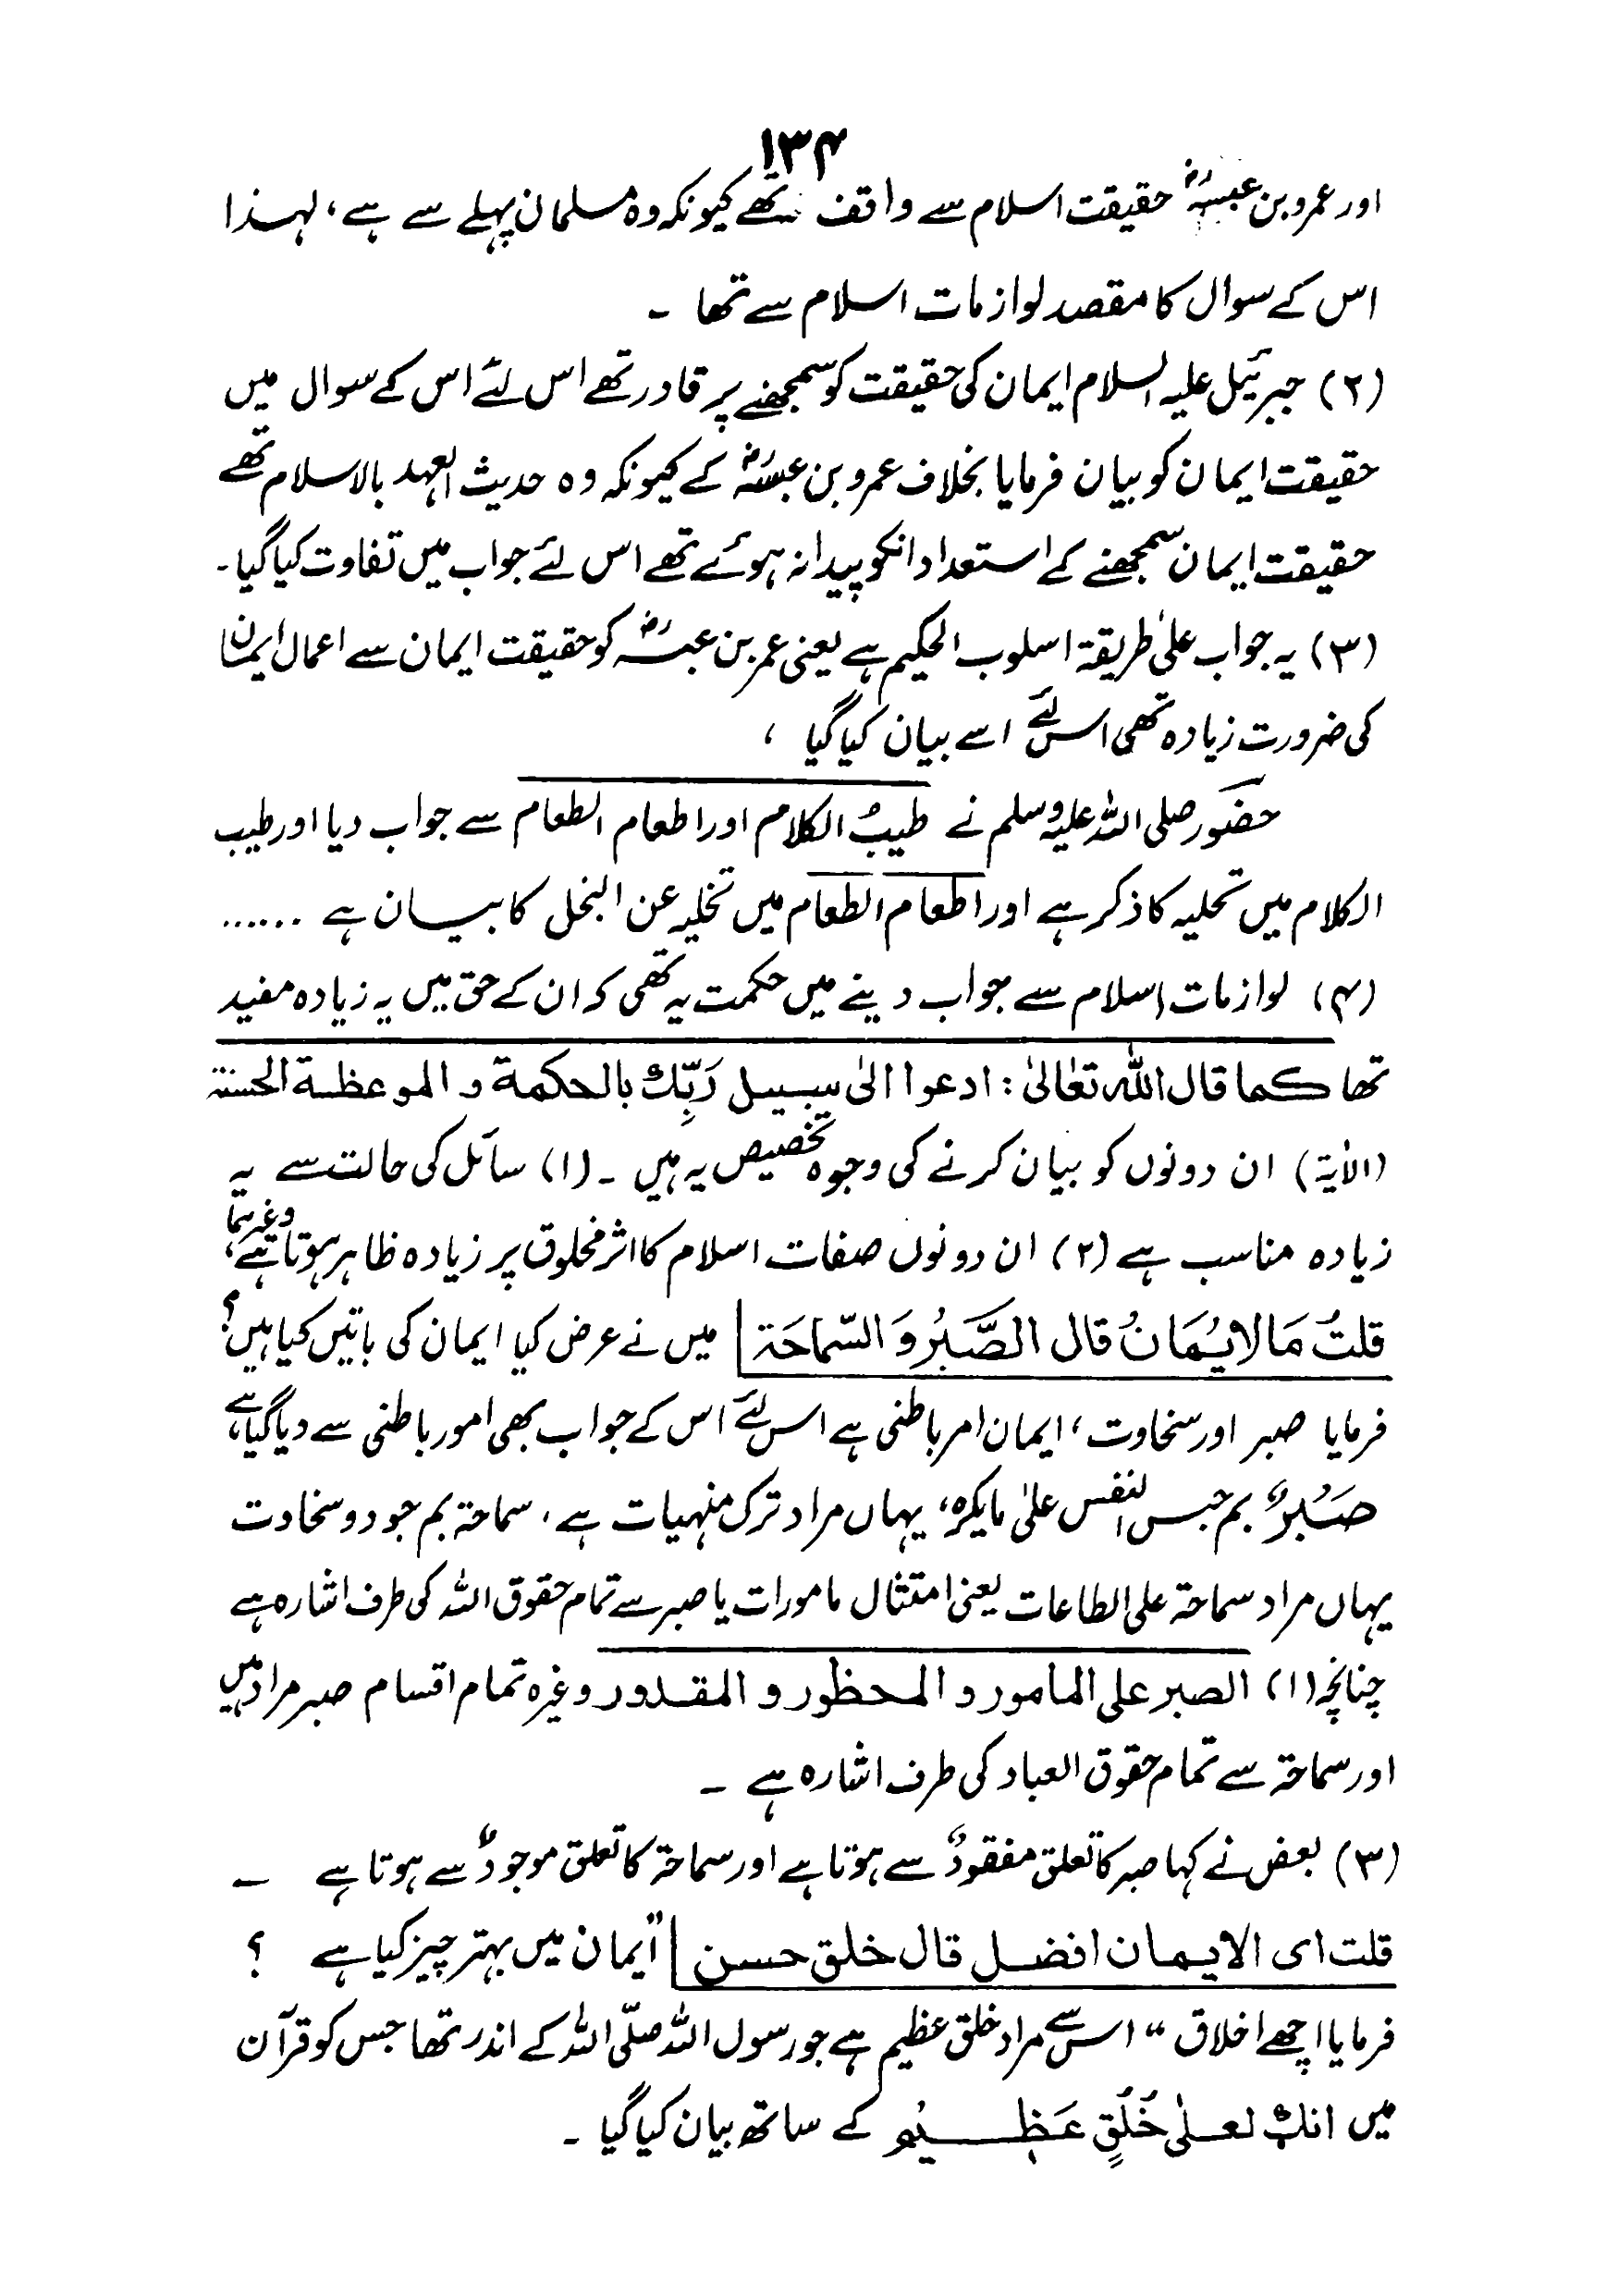 ۱۳۴
اور عمرو بن عبسہؓ حقیقت اسلام سے واقف تھے کیونکہ وہ مسلمان پہلے سے ہے، لہذا
اس کے سوال کا مقصد لوازمات اسلام سے تھا ۔
(۲) جبرئیل علیہ السلام ایمان کی حقیقت کو سمجھنے پر قادر تھے اس لئے اس کے سوال میں
حقیقت ایمان کو بیان فرمایا بخلاف عمرو بن عبسہؓ کے کیونکہ وہ حدیث العہد بالاسلام تھے
حقیقت ایمان سمجھنے کے استعداد انکو پیدا نہ ہوئے تھے اس لئے جواب میں تفاوت کیا گیا۔
(۳) یہ جواب علیٰ طریقۃ اسلوب الحکیم ہے یعنی عمر بن عبسہؓ کو حقیقت ایمان سے اعمال ایمان
کی ضرورت زیادہ تھی اس لئے اسے بیان کیا گیا ،
حضور صلی اللہ علیہ وسلم نے طیبُ الکلام اور اطعام الطعام سے جواب دیا اور طیب
الکلام میں تحلیہ کا ذکر ہے اور اطعام الطعام میں تخلیہ عن البخل کا بیان ہے ......
(۴) لوازمات اسلام سے جواب دینے میں حکمت یہ تھی کہ ان کے حق میں یہ زیادہ مفید
تھا کما قال اللہ تعالیٰ : ادعوا الیٰ سبیل رَبِّكَ بالحکمة و الموعظة الحسنة
(الاٰیة) ان دونوں کو بیان کرنے کی وجوہ تخصیص یہ ہیں ۔ (۱) سائل کی حالت سے یہ
زیادہ مناسب ہے (۲) ان دونوں صفات اسلام کا اثر مخلوق پر زیادہ ظاہر ہوتا ہے، وغیرہما
قلتُ مَا الایْمَانُ قال الصَّبْرُ وَ السّمَاحَة میں نے عرض کیا ایمان کی باتیں کیا ہیں؟
فرمایا صبر اور سخاوت، ایمان امر باطنی ہے اس لئے اس کے جواب بھی امور باطنی سے دیا گیا ہے،
صَبْرٌ بم حبس النفس علیٰ مایکرہ، یہاں مراد ترک منہیات ہے، سماحۃ بم جود و سخاوت
یہاں مراد سماحۃ علی الطاعات یعنی امتثال مامورات یا صبر سے تمام حقوق اللہ کی طرف اشارہ ہے
چنانچہ (۱) الصبر علی المامور و المحظور و المقدور وغیرہ تمام اقسام صبر مراد ہیں
اور سماحۃ سے تمام حقوق العباد کی طرف اشارہ ہے ۔
(۳) بعض نے کہا صبر کا تعلق مفقودٌ سے ہوتا ہے اور سماحۃ کا تعلق موجودٌ سے ہوتا ہے ۔
قلت ای الایمان افضل قال خلق حسن "ایمان میں بہتر چیز کیا ہے ؟
فرمایا اچھے اخلاق" اس سے مراد خلق عظیم ہے جو رسول اللہ صلّی اللہ کے اندر تھا جس کو قرآن
میں انك لعلیٰ خُلُقٍ عَظِیْم کے ساتھ بیان کیا گیا ۔